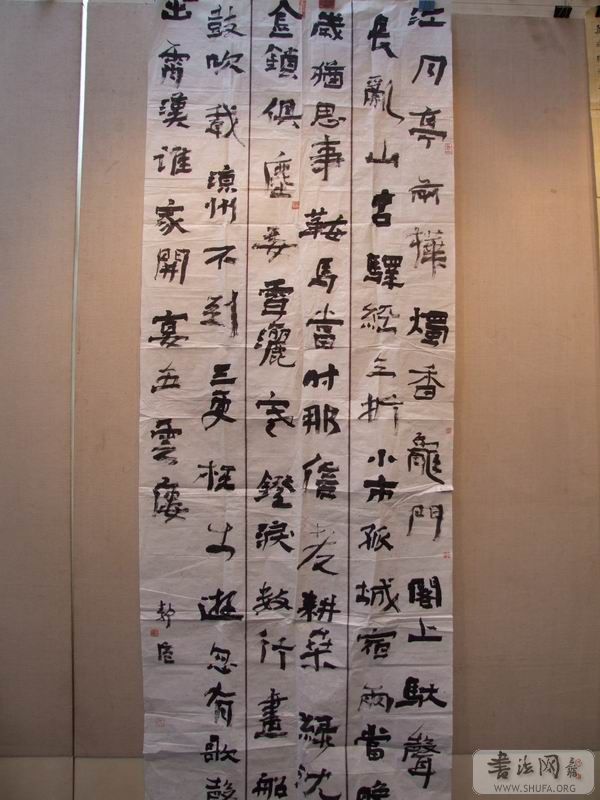 江月亭前樺燭香龍門閣上馱聲
長亂山古驛經三折小市孤城宿兩當晚
歲猶思事鞍馬當時那信老耕桑綠沈
金鎖俱塵委雪灑寒鐙淚數行畫船
鼓吹載涼州不到三更枉出遊忽有歌聲
出霄漢誰家開宴五雲樓
書法网
WWW.SHUFA.ORG